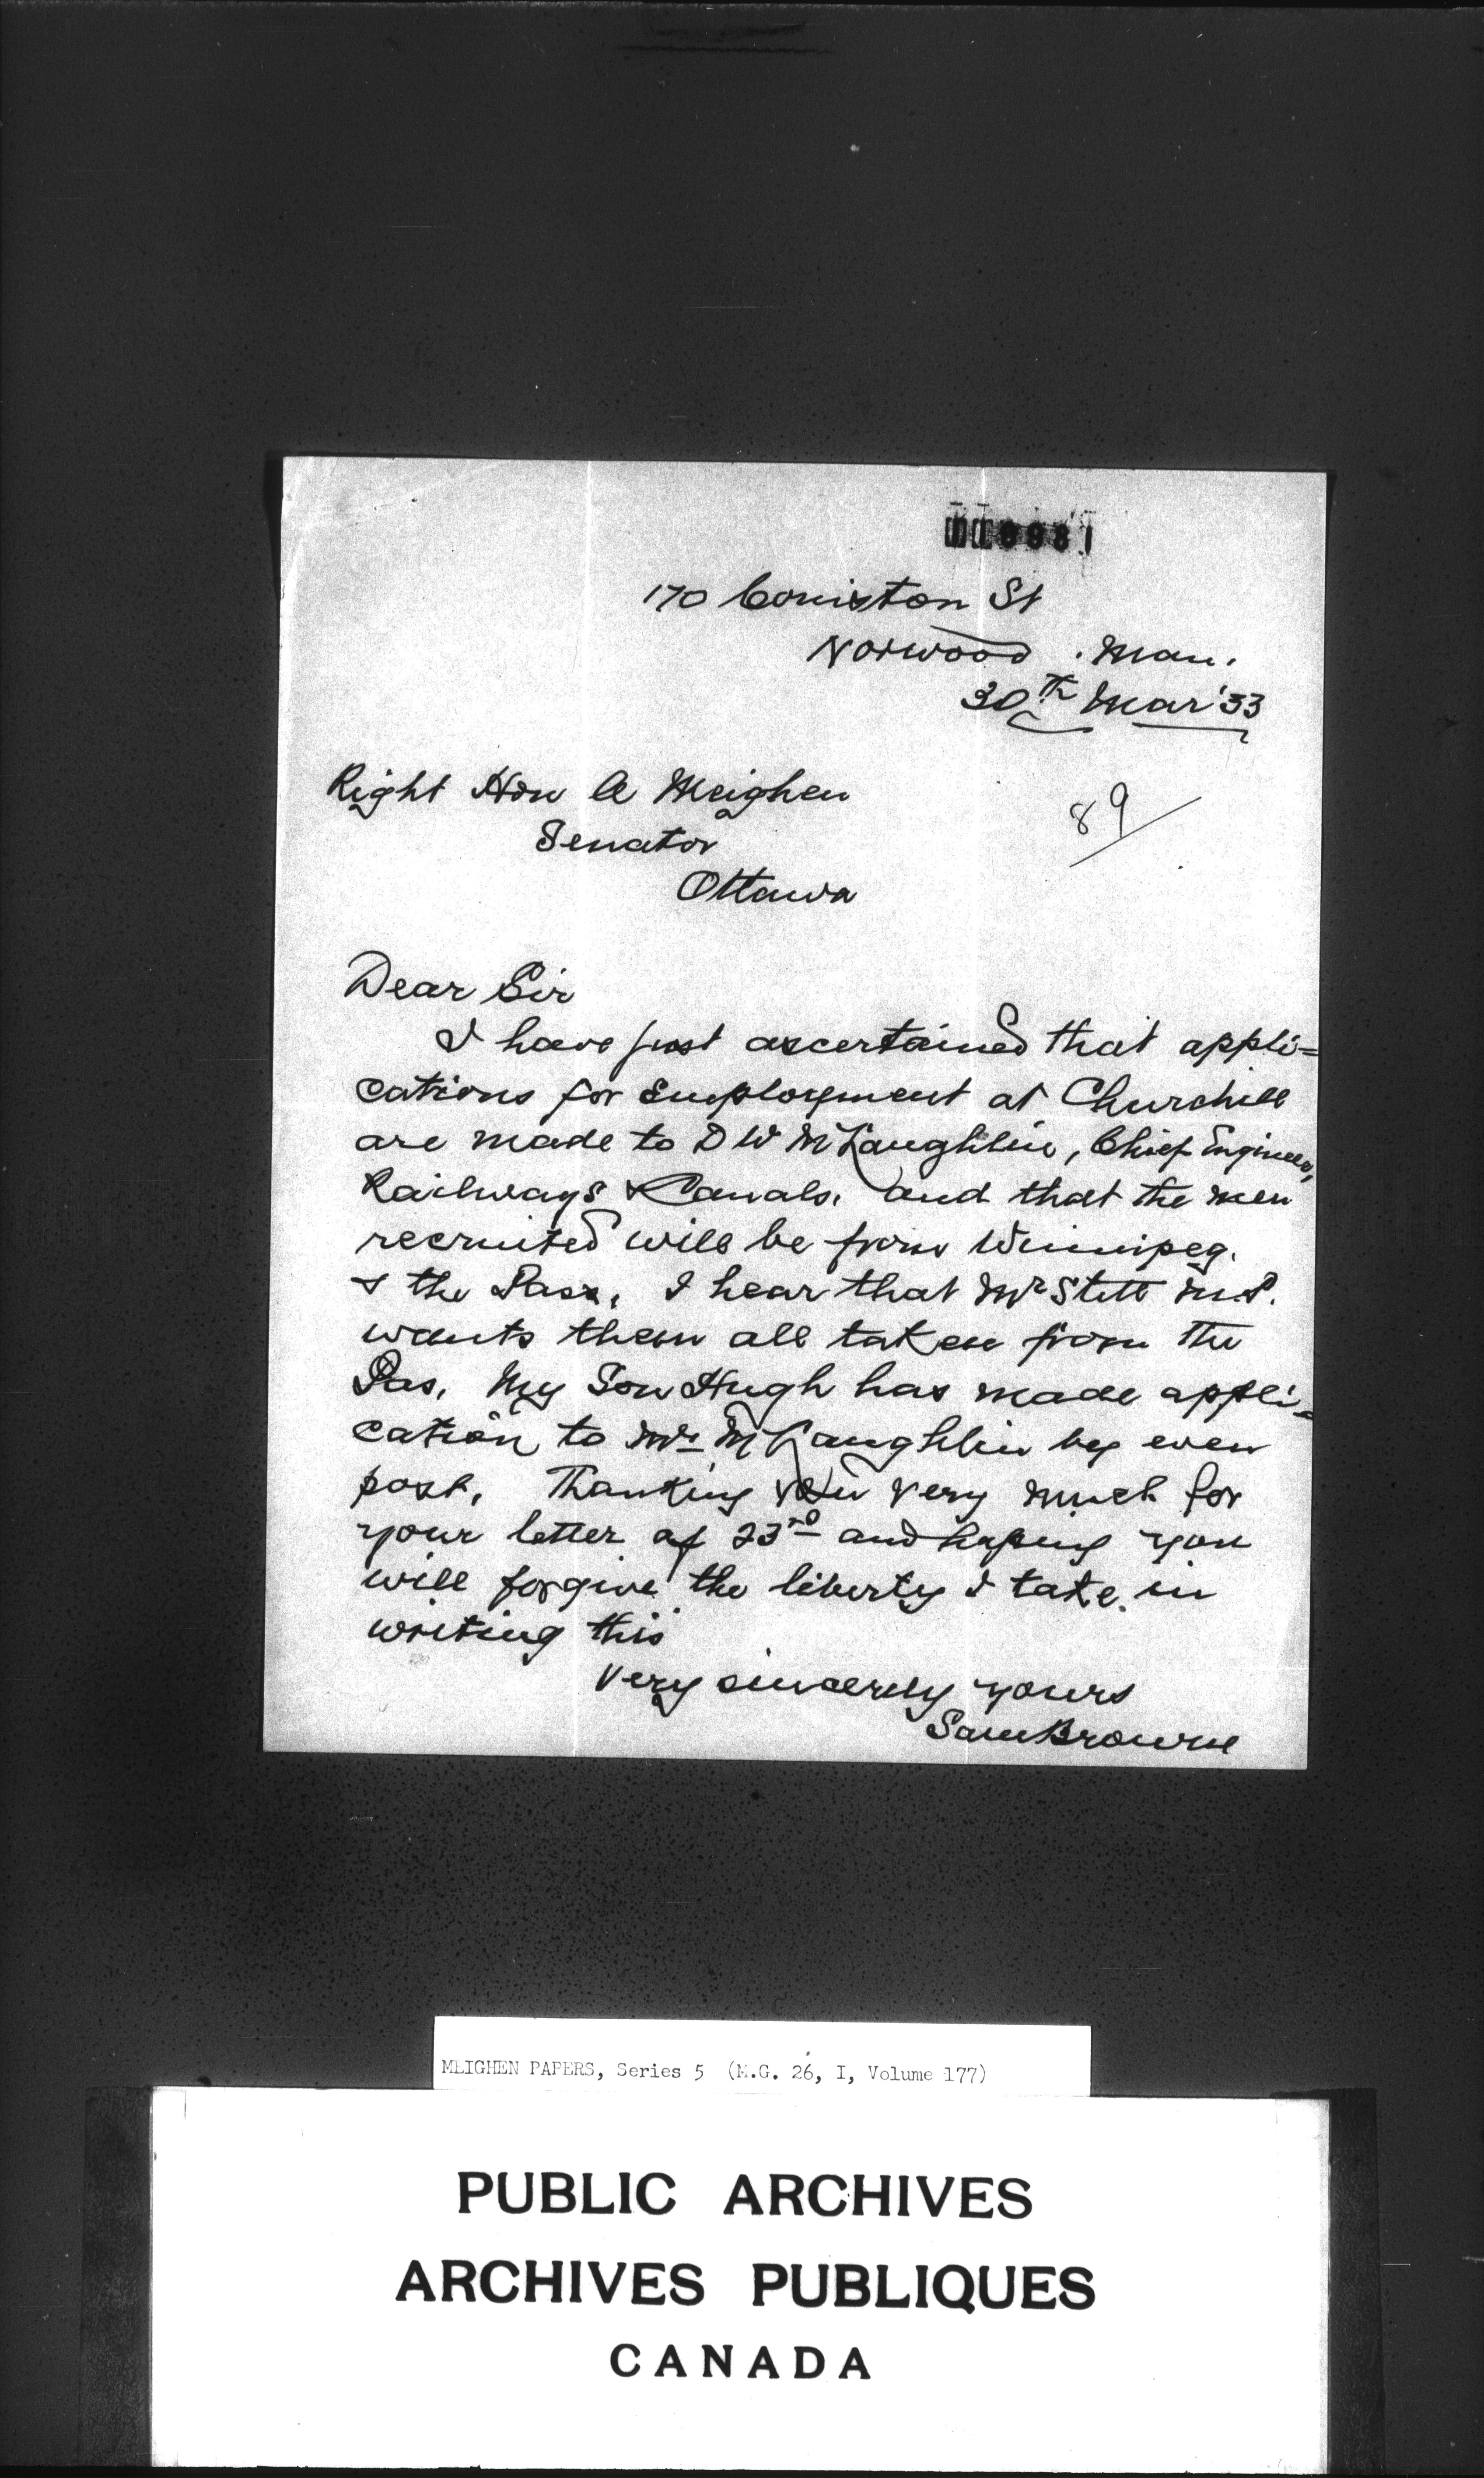 170 Coniston St
Norwood . Man.
30th Mar '33
89
Right Hon A Meighen
Senator
Ottawa
Dear Sir
I have just ascertained that appli=
cations for Employment at Churchill
are made to D W McLaughlin, Chief Engineer,
Railways & Canals. and that the men
recruited will be from Winnipeg.
& the Pass. I hear that Mr Stitt M.P.
wants them all taken from the
Pas. My Son Hugh has made appli=
cation to Mr McLaughlin by even
post. Thanking you very much for
your letter of 23rd and hoping you
will forgive the liberty I take in
writing this
Very sincerely yours
Sam Browne
MEIGHEN PAPERS, Series 5 (M.G. 26, I, Volume 177)
PUBLIC ARCHIVES
ARCHIVES PUBLIQUES
CANADA